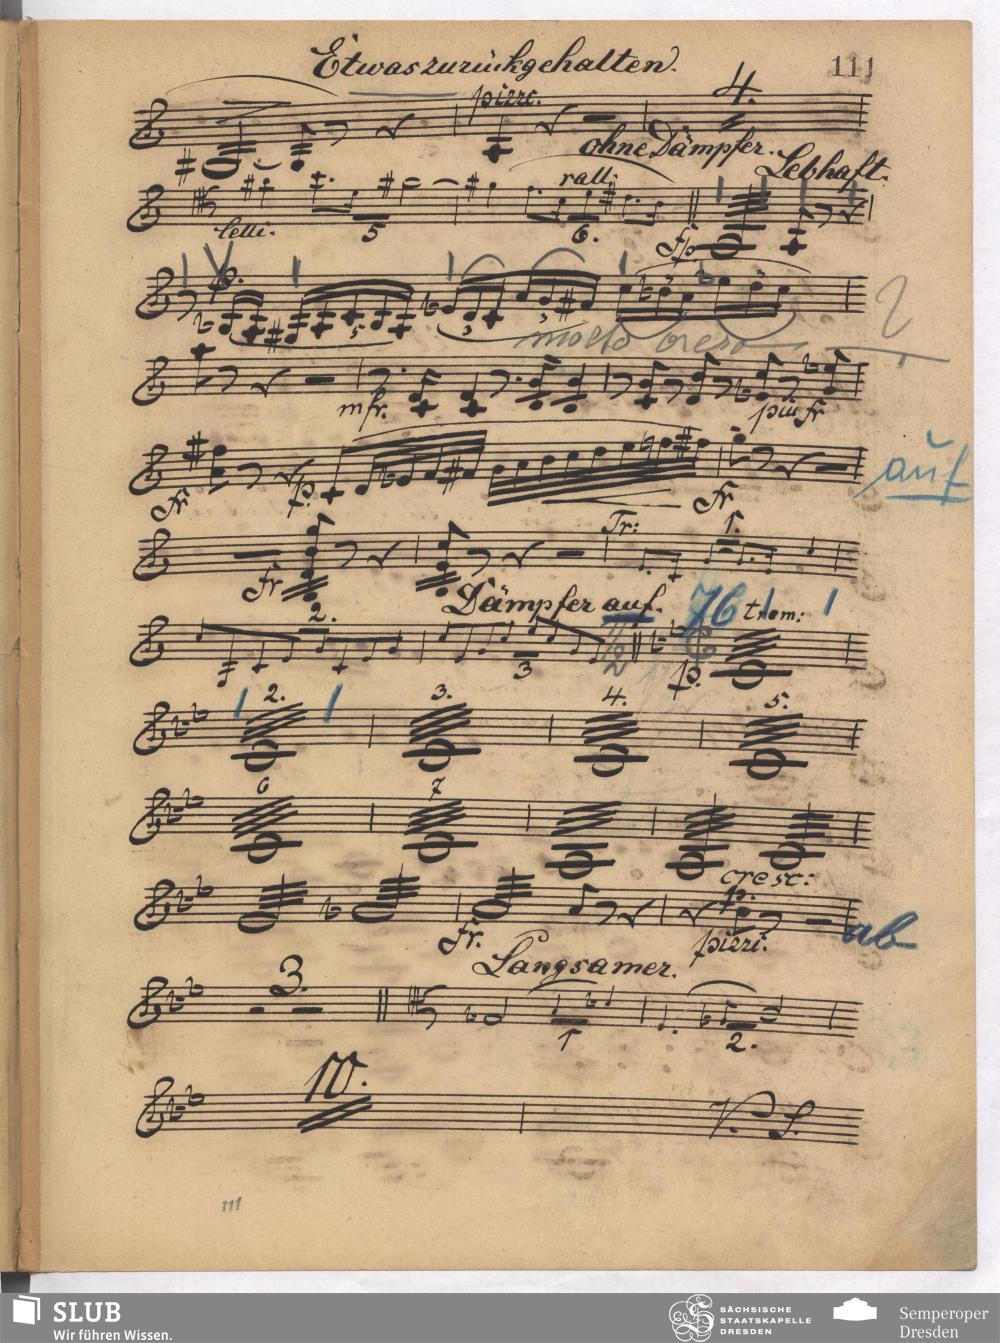 Etwas zurückgehalten. 111
pizzc. 4.
ohne Dämpfer. Lebhaft.
rall:
Celli. 5 6. fp
p.
5 3 3
molto cresc
mfr. più fr.
fr p. fr auf
Tr: 1.
fr Dämpfer auf. 76 trem:
2. 3 p.
2. 3. 4. 5.
6 7
cresc:
p.
fr. pizzi. ab
Langsamer.
3.
1 2.
10.
V. S.
111
SLUB
Wir führen Wissen.
SÄCHSISCHE
STAATSKAPELLE
DRESDEN
Semperoper
Dresden